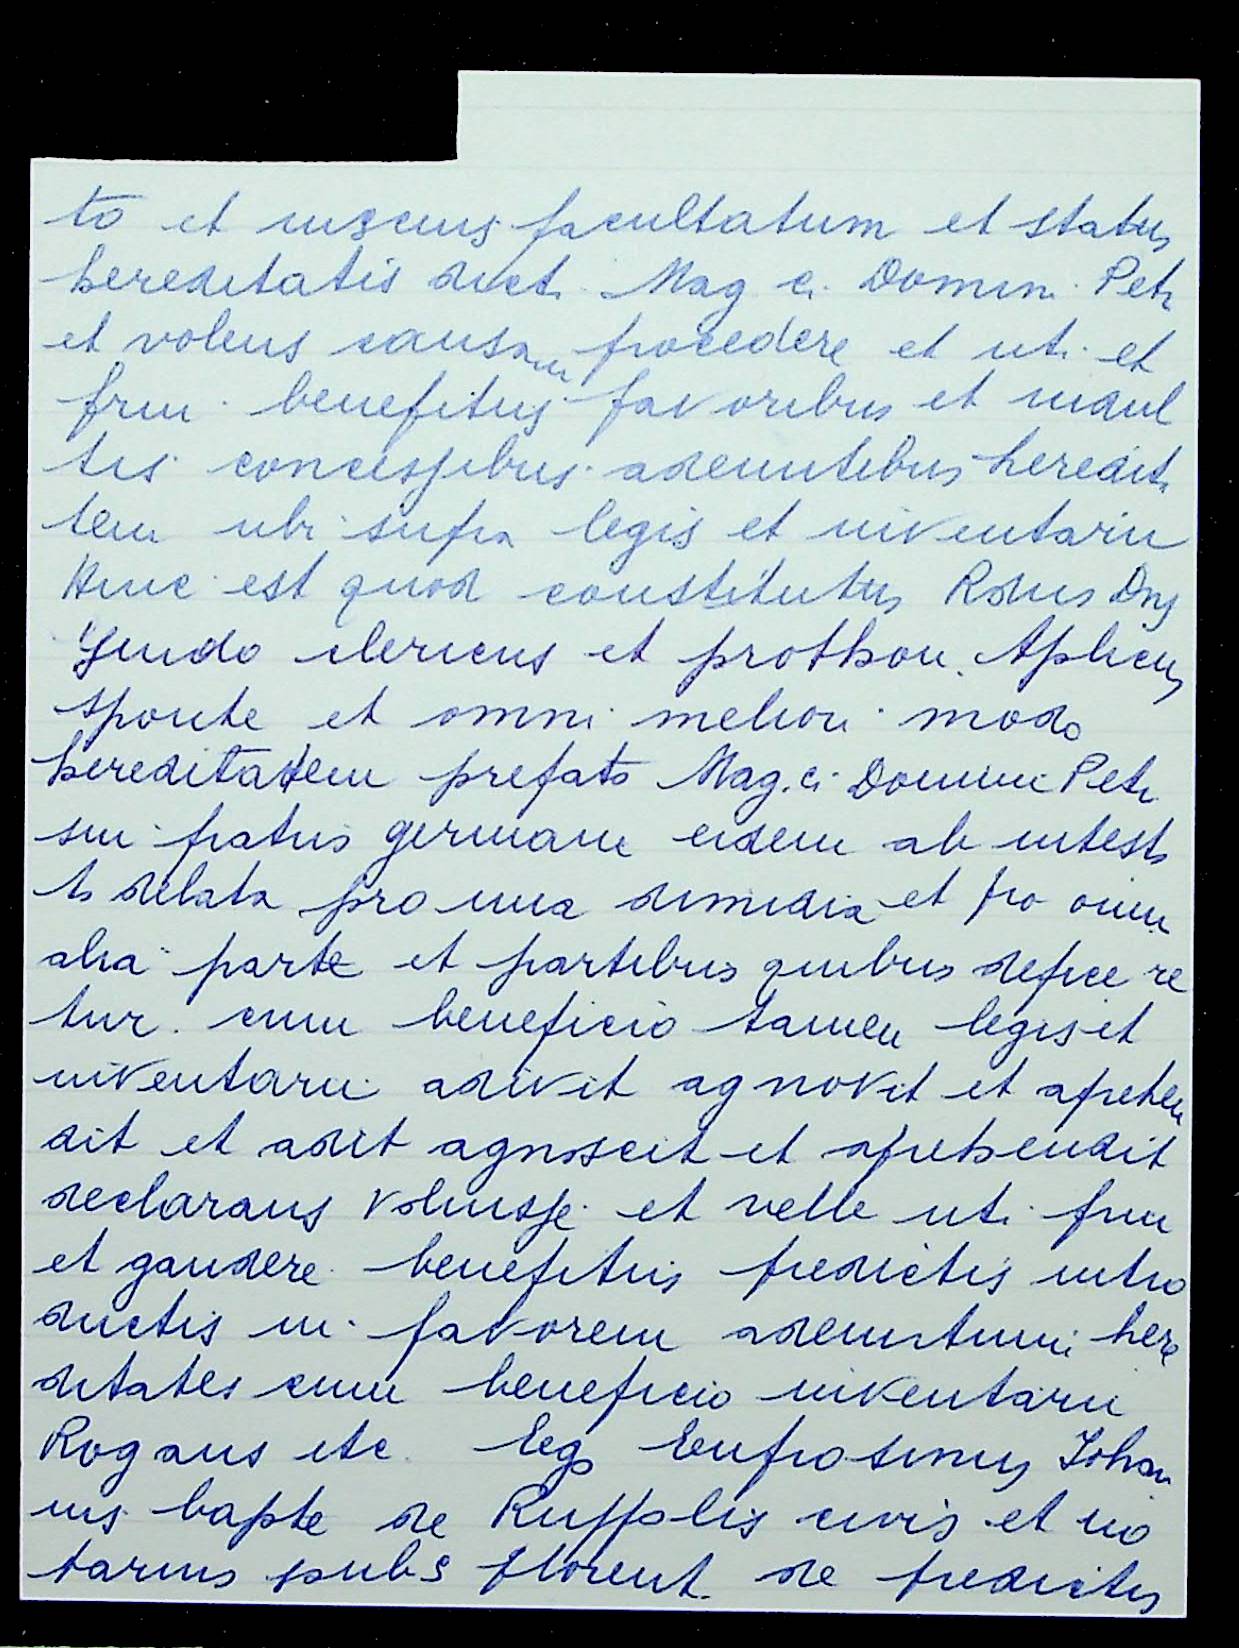 to et inscius facultatum et status
hereditatis dict. Mag ci. Domin. Petr
et volens causam procedere et uti et
frui benefitiis favoribus et indul
tis concessibus adeuntibus heredit.
tem ubi supra legis et inventarii
Hinc est quod constitutus Rdus Dns
Guido clericus et prothon. Aplicus
sponte et omni meliori modo
hereditatem prefato Mag.ci Domini Petr
sui fratris germani eidem ab intesta
to delata pro una dimidia et pro omni
alia parte et partibus quibus defice re
tur. cum beneficio tamen legis et
inventarii adivit agnovit et aprehen
dit et adit agnoscit et aprehendit
declarans voluisse et velle uti frui
et gaudere benefitiis predictis intro
ductis in favorem adeuntium here
ditates cum beneficio inventarii
Rogans etc. Ego Eufrosinus Johan
nis bapte de Ruffolis civis et no
tarius pubs florent. de predictis